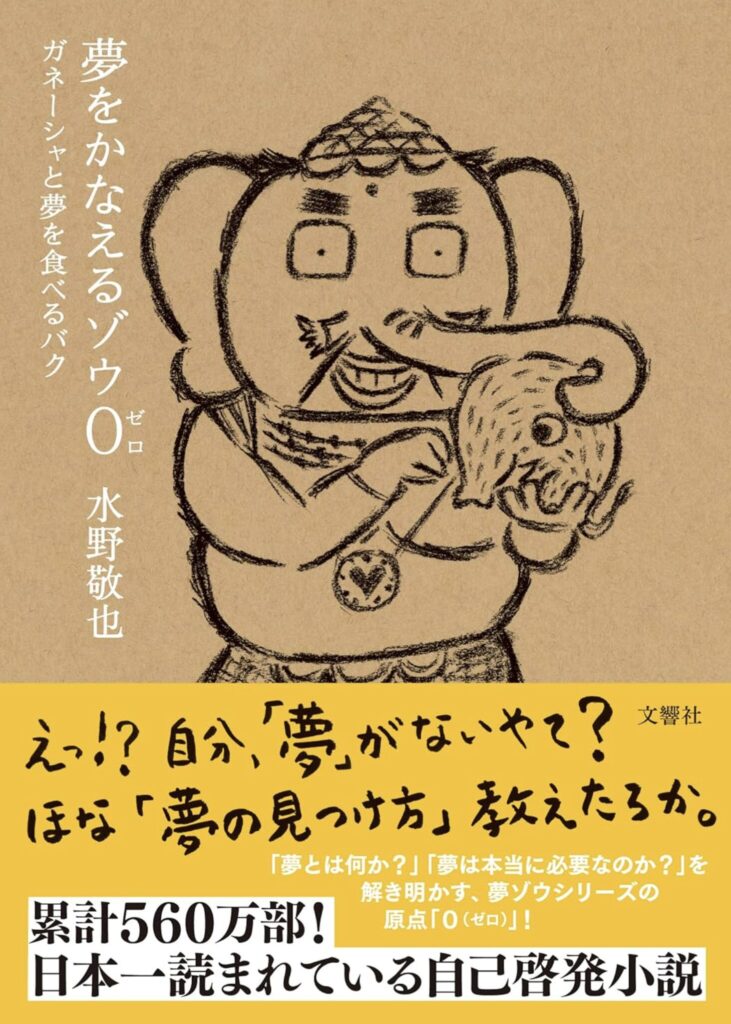 夢をかなえるゾウ0
ゼロ
ガネーシャと夢を食べるバク
水野敬也
えっ!? 自分、「夢」がないやて?
ほな「夢の見つけ方」教えたろか。
文響社
「夢とは何か?」「夢は本当に必要なのか?」を
解き明かす、夢ゾウシリーズの
原点「0(ゼロ)」!
累計560万部!
日本一読まれている自己啓発小説